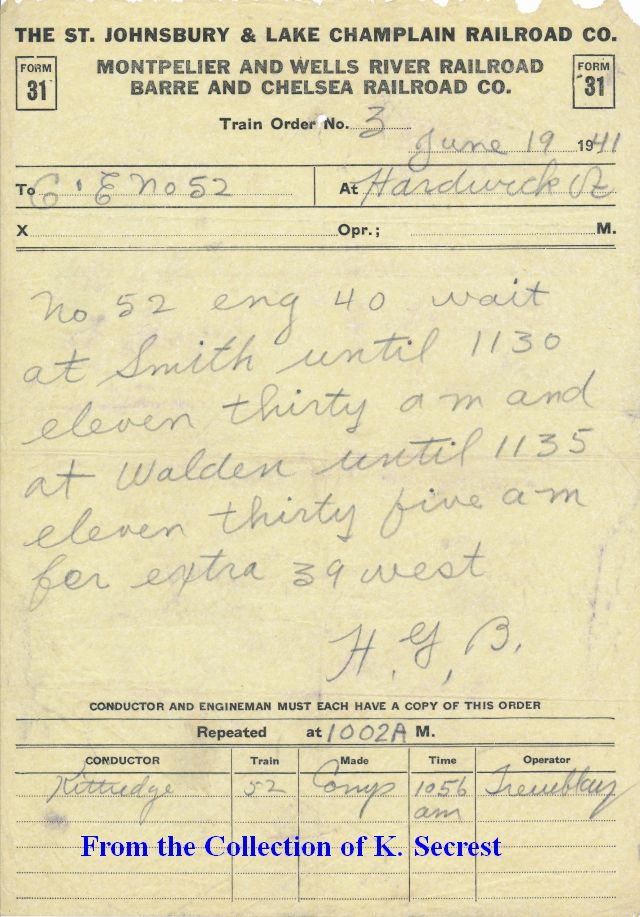 THE ST. JOHNSBURY & LAKE CHAMPLAIN RAILROAD CO.
FORM 31
MONTPELIER AND WELLS RIVER RAILROAD
BARRE AND CHELSEA RAILROAD CO.
FORM 31
Train Order No. 3
June 19 1941
To C & E No 52 At Hardwick Vt
X Opr.; M.
No 52 eng 40 wait
at Smith until 1130
eleven thirty a m and
at Walden until 1135
eleven thirty five a m
for extra 39 west
H. G. B.
CONDUCTOR AND ENGINEMAN MUST EACH HAVE A COPY OF THIS ORDER
Repeated at 1002A M.
CONDUCTOR Train Made Time Operator
Kittredge 52 Comp 1056 am Tremblay
From the Collection of K. Secrest